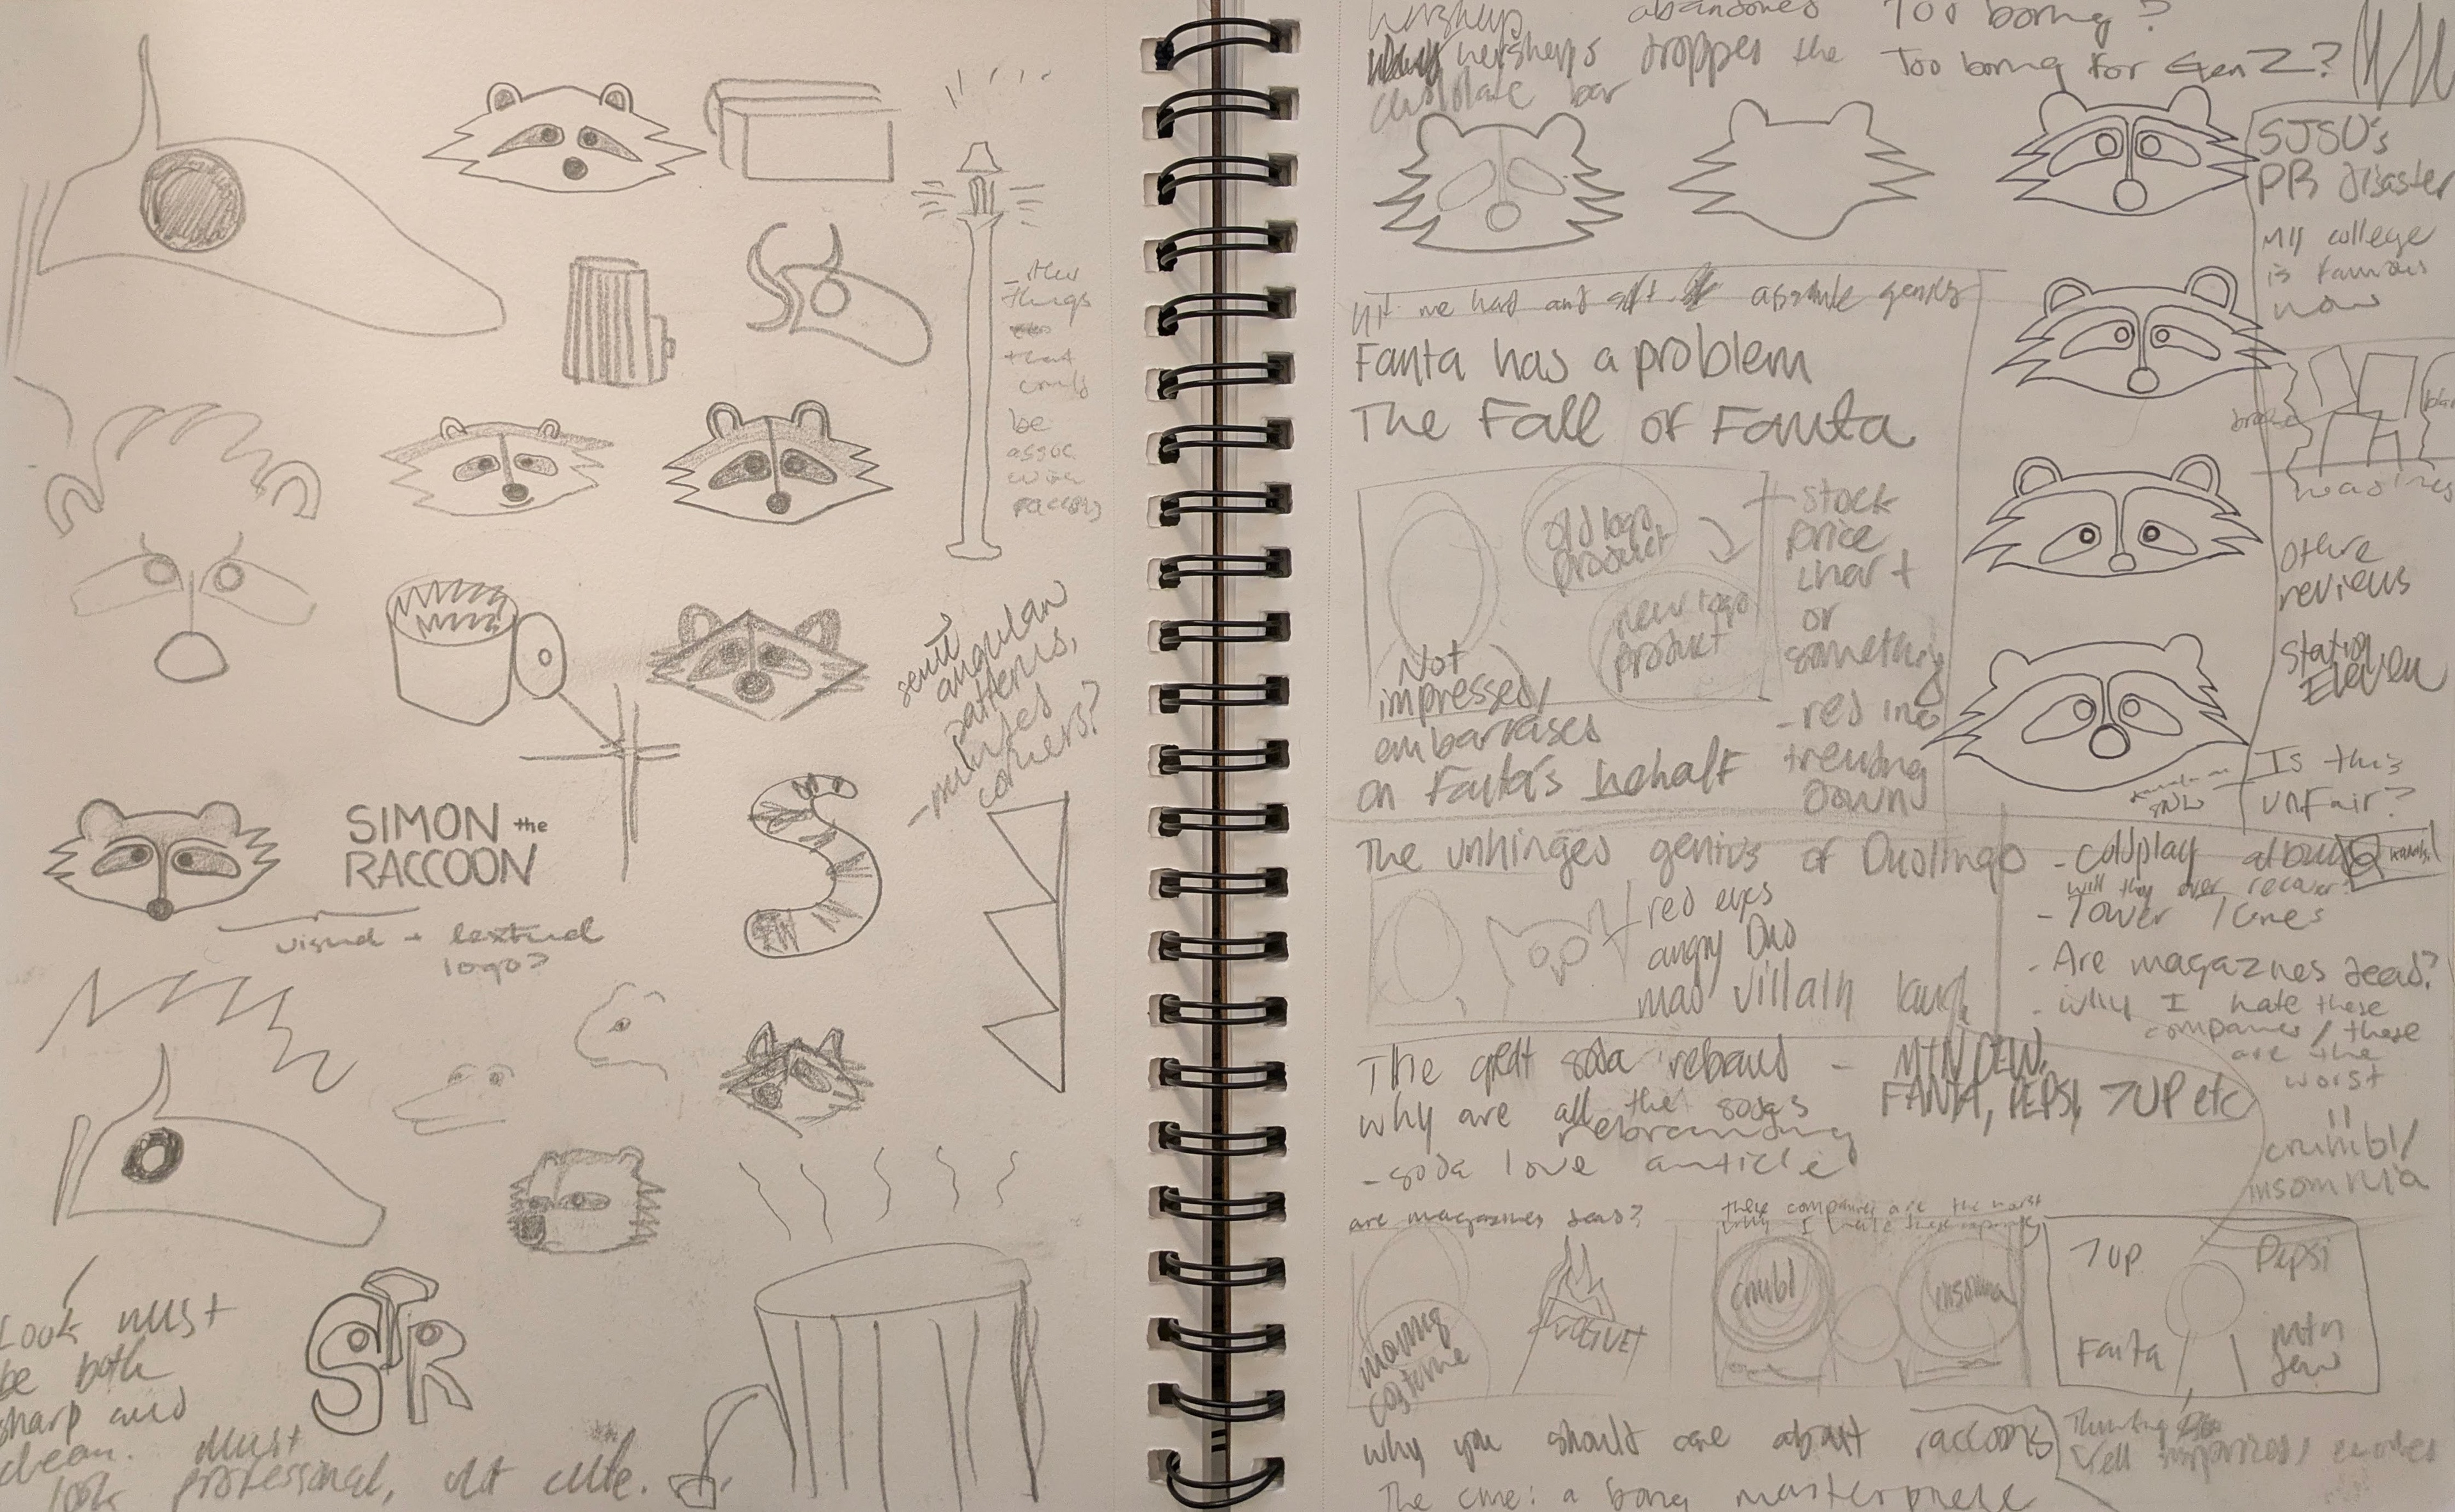 - other
things
that
could
be
assoc
with
raccoons
semi
angular
patterns,
- minused
corners?
SIMON the
RACCOON
visual + textual
logo?
STR
Look must
be both
sharp and
clean. Must
look professional, not cute.
Hersheys abandoned Too boring?
hersheys dropped the Too boring for Gen Z?
chocolate bar
SJSU's
PR disaster
My college
is famous
now
absolute genius
Fanta has a problem
The Fall of Fanta
old logo
product
new logo
product
- stock
price
chart
or
something
- red line
trending
down
Not
impressed/
embarrased
on Fanta's behalf
other
reviews
Station
Eleven
Is this
unfair?
The unhinged genius of Duolingo
red eyes
angry Duo
mad villain laugh
- Coldplay album
will they ever recover?
- Tower Lines
- Are magazines dead?
- why I hate these
companies / these
are the
worst
crumbl/
insomnia
The great soda rebrand - MTN DEW,
FANTA, PEPSI, 7UP etc
why are all the sodas
rebranding
- soda love article
are magazines dead?
these companies are the worst
why I hate these companies
crumbl
insomnia
7up
Pepsi
Fanta
mtn
dew
costume
why you should care about raccoons
The one: a boring masterpiece